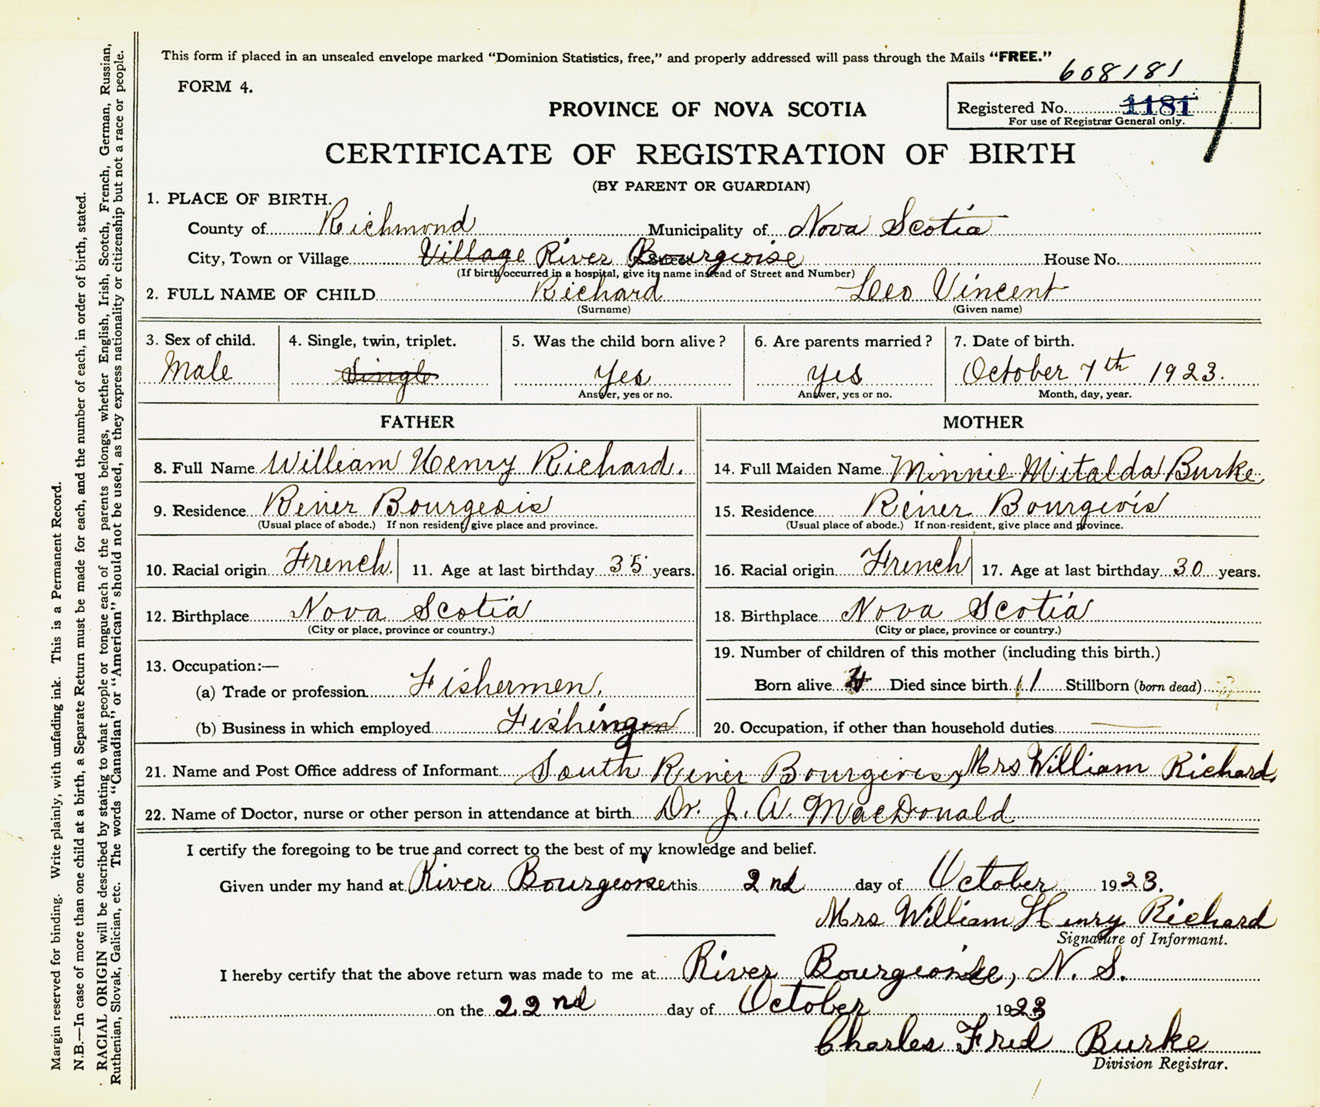 This form if placed in an unsealed envelope marked "Dominion Statistics, free," and properly addressed will pass through the Mails "FREE."
608181
FORM 4.
Registered No. 1181
For use of Registrar General only.
PROVINCE OF NOVA SCOTIA
CERTIFICATE OF REGISTRATION OF BIRTH
(BY PARENT OR GUARDIAN)
1. PLACE OF BIRTH.
County of Richmond Municipality of Nova Scotia
City, Town or Village Village River Bourgeoise House No.
(If birth occurred in a hospital, give its name instead of Street and Number)
2. FULL NAME OF CHILD Richard Leo Vincent
(Surname) (Given name)
3. Sex of child. 4. Single, twin, triplet. 5. Was the child born alive? 6. Are parents married? 7. Date of birth.
Male Single Yes Yes October 7th 1923.
Answer, yes or no. Answer, yes or no. Month, day, year.
FATHER MOTHER
8. Full Name William Henry Richard. 14. Full Maiden Name Minnie Mitalda Burke
9. Residence River Bourgeois 15. Residence River Bourgeois
(Usual place of abode.) If non resident, give place and province. (Usual place of abode.) If non-resident, give place and province.
10. Racial origin French 11. Age at last birthday 35 years. 16. Racial origin French 17. Age at last birthday 30 years.
12. Birthplace Nova Scotia 18. Birthplace Nova Scotia
(City or place, province or country.) (City or place, province or country.)
13. Occupation:— 19. Number of children of this mother (including this birth.)
(a) Trade or profession Fishermen. Born alive 4 Died since birth 1 Stillborn (born dead)
(b) Business in which employed Fishing 20. Occupation, if other than household duties
21. Name and Post Office address of Informant South River Bourgeois, Mrs William Richard,
22. Name of Doctor, nurse or other person in attendance at birth Dr. J. A. MacDonald
I certify the foregoing to be true and correct to the best of my knowledge and belief.
Given under my hand at River Bourgeoise this 2nd day of October 1923.
Mrs William Henry Richard
Signature of Informant.
I hereby certify that the above return was made to me at River Bourgeoise, N. S.
on the 22nd day of October 1923
Charles Fred Burke
Division Registrar.
Margin reserved for binding. Write plainly, with unfading ink. This is a Permanent Record.
N.B.—In case of more than one child at a birth, a Separate Return must be made for each, and the number of each, in order of birth, stated.
RACIAL ORIGIN will be described by stating to what people or tongue each of the parents belongs, whether English, Irish, Scotch, French, German, Russian,
Ruthenian, Slovak, Galician, etc. The words "Canadian" or "American" should not be used, as they express nationality or citizenship but not a race or people.